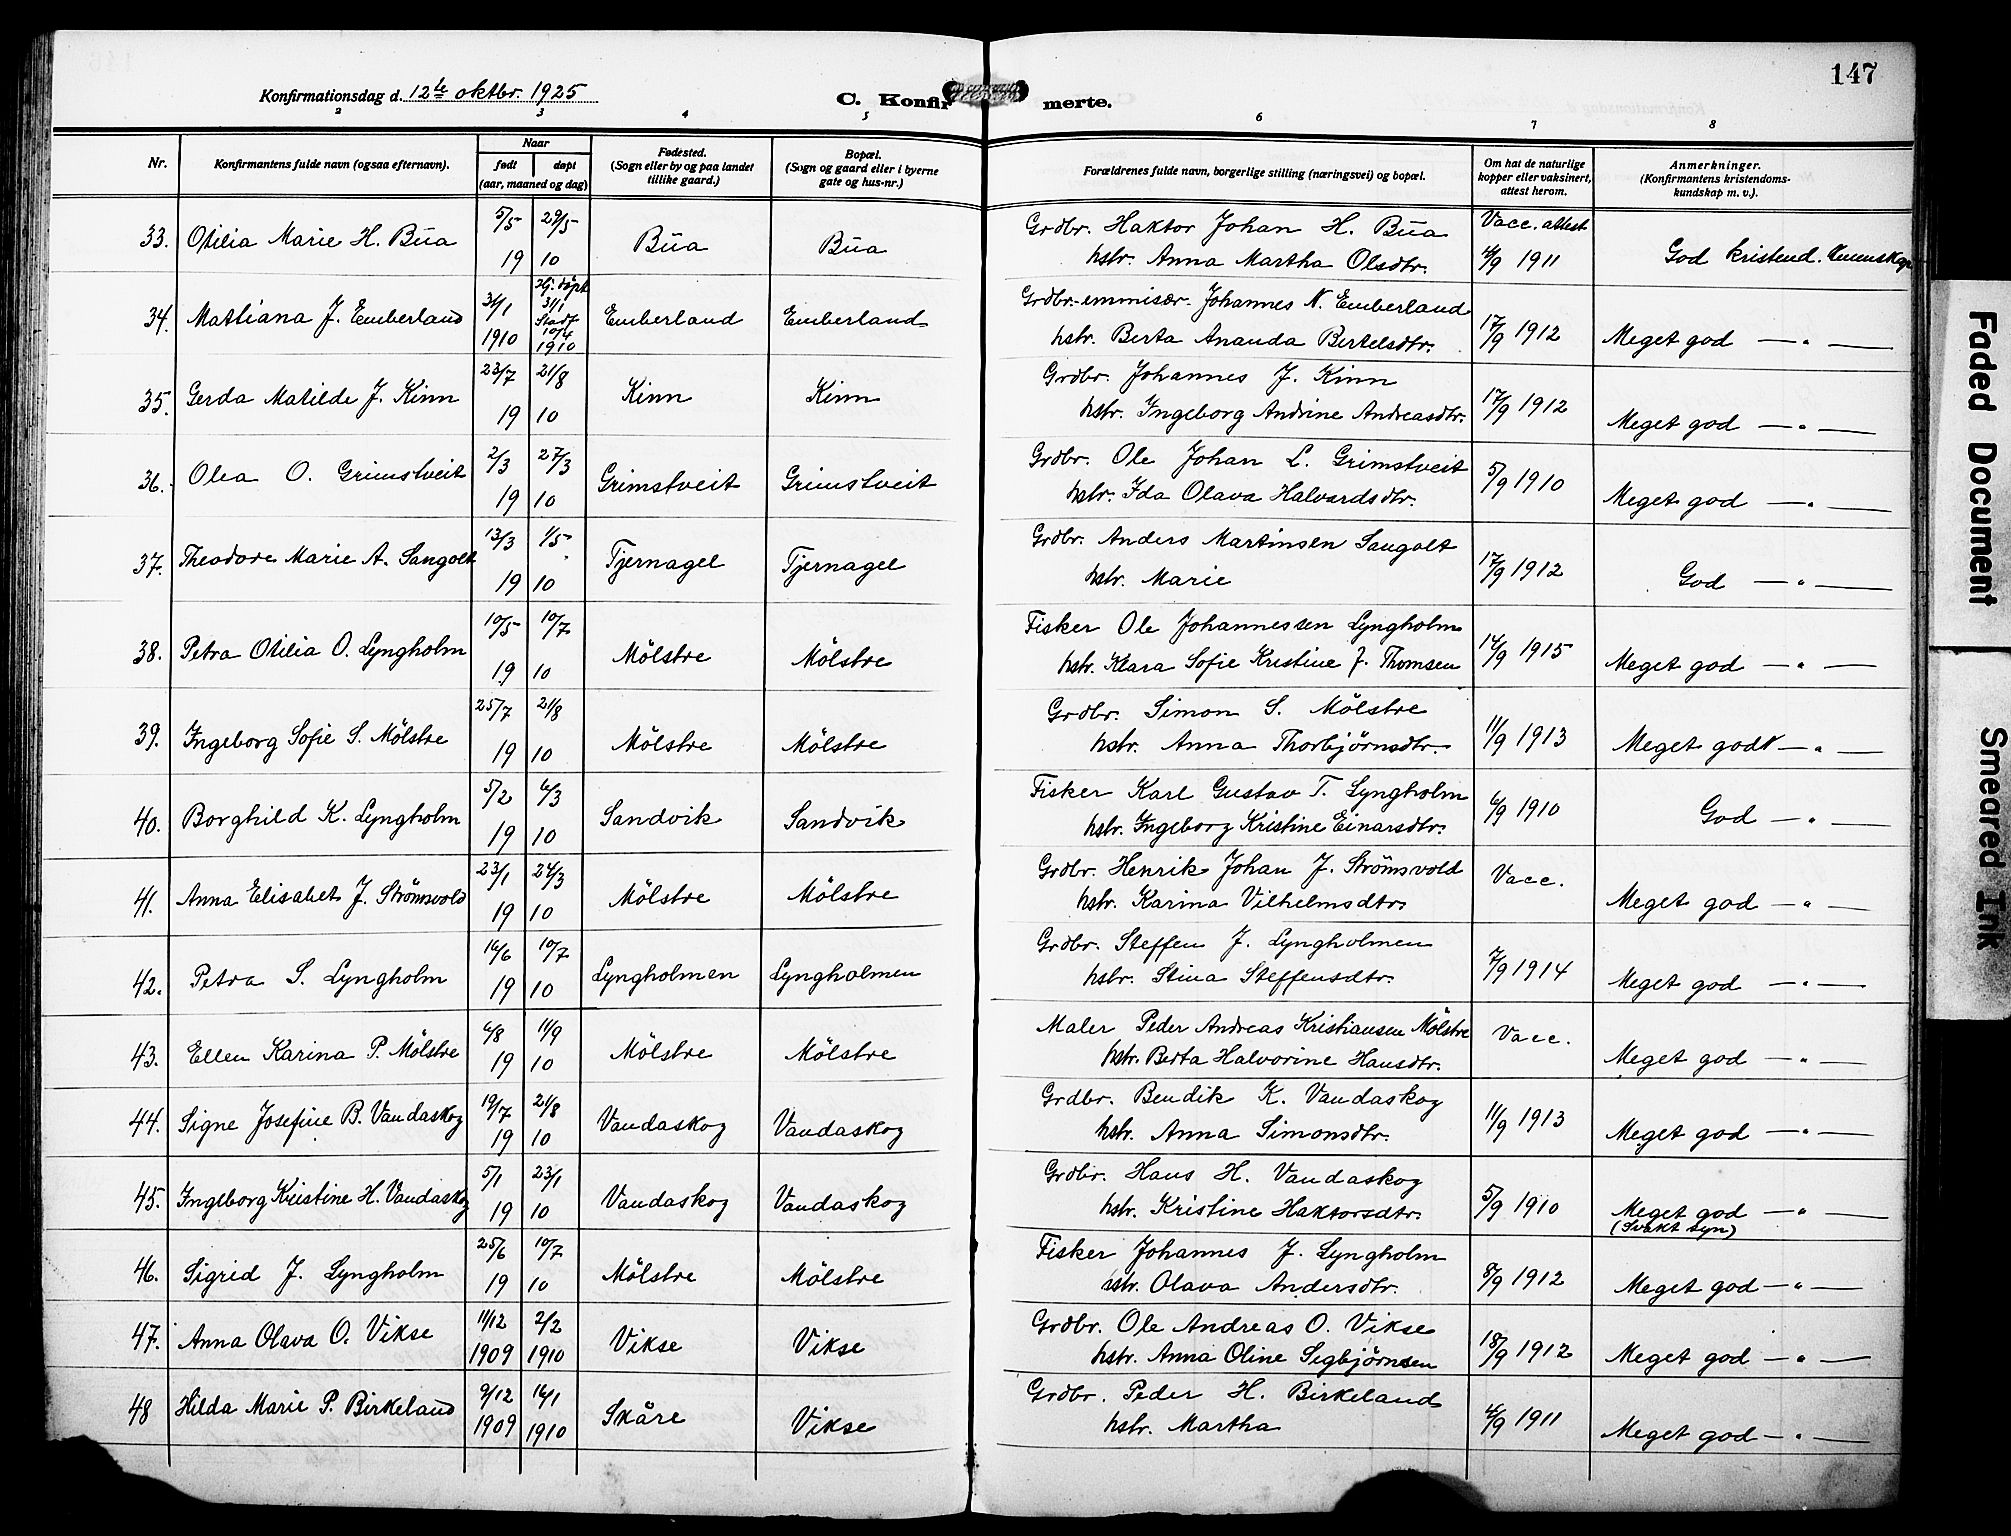 147
Konfirmationsdag d. 12te oktbr. 1925
C. Konfirmerte.
2 3 4 5 6 7 8
Nr.
Konfirmantens fulde navn (ogsaa efternavn).
Naar
født døpt
(aar, maaned og dag)
Fødested.
(Sogn eller by og paa landet
tillike gaard.)
Bopæl.
(Sogn og gaard eller i byerne
gate og hus-nr.)
Forældrenes fulde navn, borgerlige stilling (næringsvei) og bopæl.
Om hat de naturlige
kopper eller vaksinert,
attest herom.
Anmerkninger.
(Konfirmantens kristendoms-
kundskap m. v.).
33. Otilia Marie H. Bua 5/5 19 29/5 10 Bua Bua Grdbr. Haktor Johan H. Bua Vacc. attest
hstr. Anna Martha Olsdtr. 4/9 1911 God kristend. kunnskap
34. Mattiana J. Emberland 31/1 1910 Hj. døpt 31/1 Stadf. 10/4 1910 Emberland Emberland Grdbr.-emmisær. Johannes N. Emberland
hstr. Berta Ananda Bertelsdtr. 17/9 1912 Meget god — " —
35. Gerda Matilde J. Kinn 23/7 19 21/8 10 Kinn Kinn Grdbr. Johannes J. Kinn
hstr. Ingeborg Andrine Andreasdtr. 17/9 1912 Meget god — " —
36. Olea O. Grimstveit 2/3 19 27/3 10 Grimstveit Grimstveit Grdbr. Ole Johan L. Grimstveit
hstr. Ida Olava Halvardsdtr. 5/9 1910 Meget god — " —
37. Theodore Marie A. Sangolt 13/3 19 1/5 10 Tjernagel Tjernagel Grdbr. Anders Martinsen Sangolt
hstr. Marie 17/9 1912 God — " —
38. Petra Otilia O. Lyngholm 10/5 19 10/7 10 Mölstre Mölstre Fisker Ole Johannessen Lyngholm
hstr. Klara Sofie Kristine J. Thomsen 14/9 1915 Meget god — " —
39. Ingeborg Sofie S. Mölstre 25/7 19 21/8 10 Mölstre Mölstre Grdbr. Simon S. Mölstre
hstr. Anna Thorbjørnsdtr. 11/9 1913 Meget god — " —
40. Borghild K. Lyngholm 5/2 19 6/3 10 Sandvik Sandvik Fisker Karl Gustav T. Lyngholm
hstr. Ingeborg Kristine Einarsdtr. 6/9 1910 God — " —
41. Anna Elisabet J. Strömsvold 23/1 19 24/3 10 Mölstre Mölstre Grdbr. Henrik Johan J. Strömsvold Vacc.
hstr. Karina Vilhelmsdtr. Meget god — " —
42. Petra S. Lyngholm 16/6 19 10/7 10 Lyngholmen Lyngholmen Grdbr. Steffen J. Lyngholmen
hstr. Stina Steffensdtr. 7/9 1914 Meget god — " —
43. Ellen Karina P. Mölstre 6/8 19 11/9 10 Mölstre Mölstre Maler Peder Andreas Kristiansen Mölstre Vacc.
hstr. Berta Halvorine Hansdtr. Meget god — " —
44. Signe Josefine B. Vandaskog 19/7 19 21/8 10 Vandaskog Vandaskog Grdbr. Bendik K. Vandaskog
hstr. Anna Simonsdtr. 11/9 1913 Meget god — " —
45. Ingeborg Kristine H. Vandaskog 5/1 19 23/1 10 Vandaskog Vandaskog Grdbr. Hans H. Vandaskog
hstr. Kristine Haktorsdtr. 5/9 1910 Meget god — " —
(Svakt syn)
46. Sigrid J. Lyngholm 25/6 19 10/7 10 Mölstre Mölstre Fisker Johannes J. Lyngholm
hstr. Olava Andersdtr. 8/9 1912 Meget god — "
47. Anna Olava O. Vikse 11/12 1909 2/2 1910 Vikse Vikse Grdbr. Ole Andreas O. Vikse
hstr. Anna Oline Sigbjørnsen 18/9 1912 Meget god — " —
48 Hilda Marie P. Birkeland 9/12 1909 16/1 1910 Skåre Vikse Grdbr. Peder H. Birkeland
hstr. Martha 4/9 1911 Meget god — " —
Faded Document
Smeared Ink